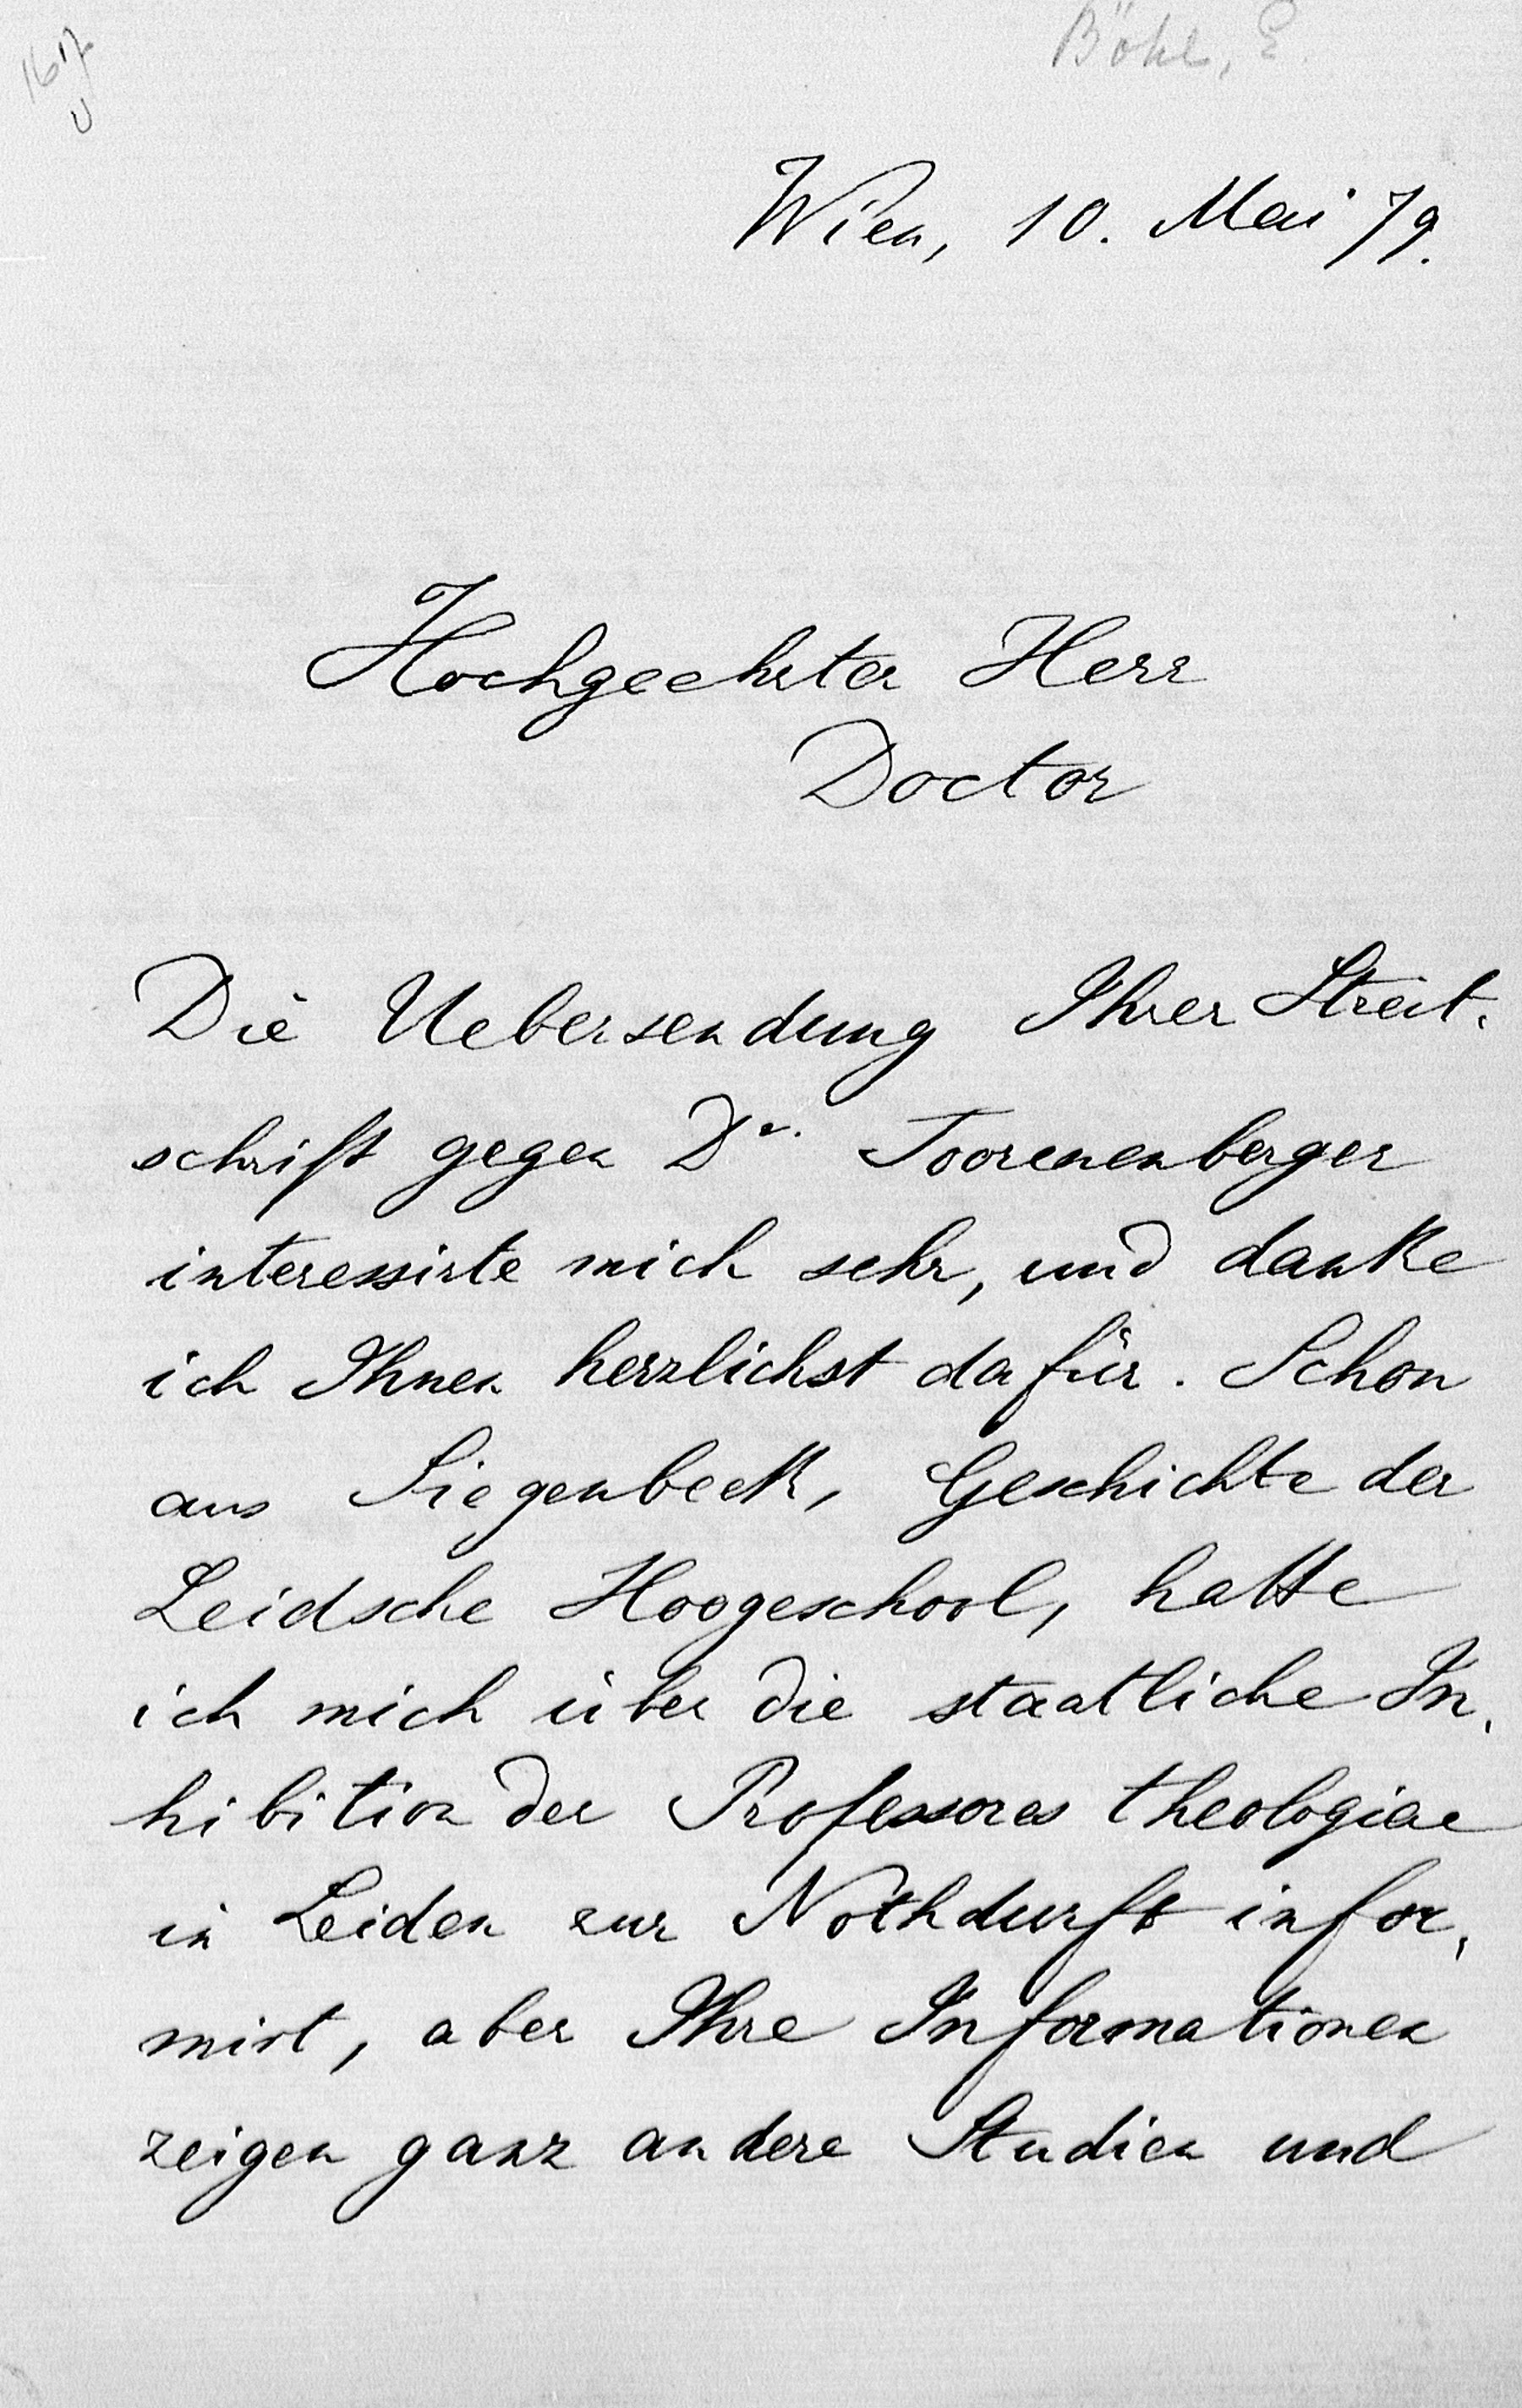 167
Böhl, E.
Wien, 10. Mai 79.
Hochgeehrter Herr
Doctor
Die Uebersendung Ihrer Streit-
schrift gegen Dr. Toorenenberger
interessirte mich sehr, und danke
ich Ihnen herzlichst dafür. Schon
aus Siegenbeek, Geschichte der
Leidsche Hoogeschool, hatte
ich mich über die staatliche In-
hibition der Professores theologiae
in Leiden zur Nothdurft infor-
mirt, aber Ihre Informationen
zeigen ganz andere Studien und